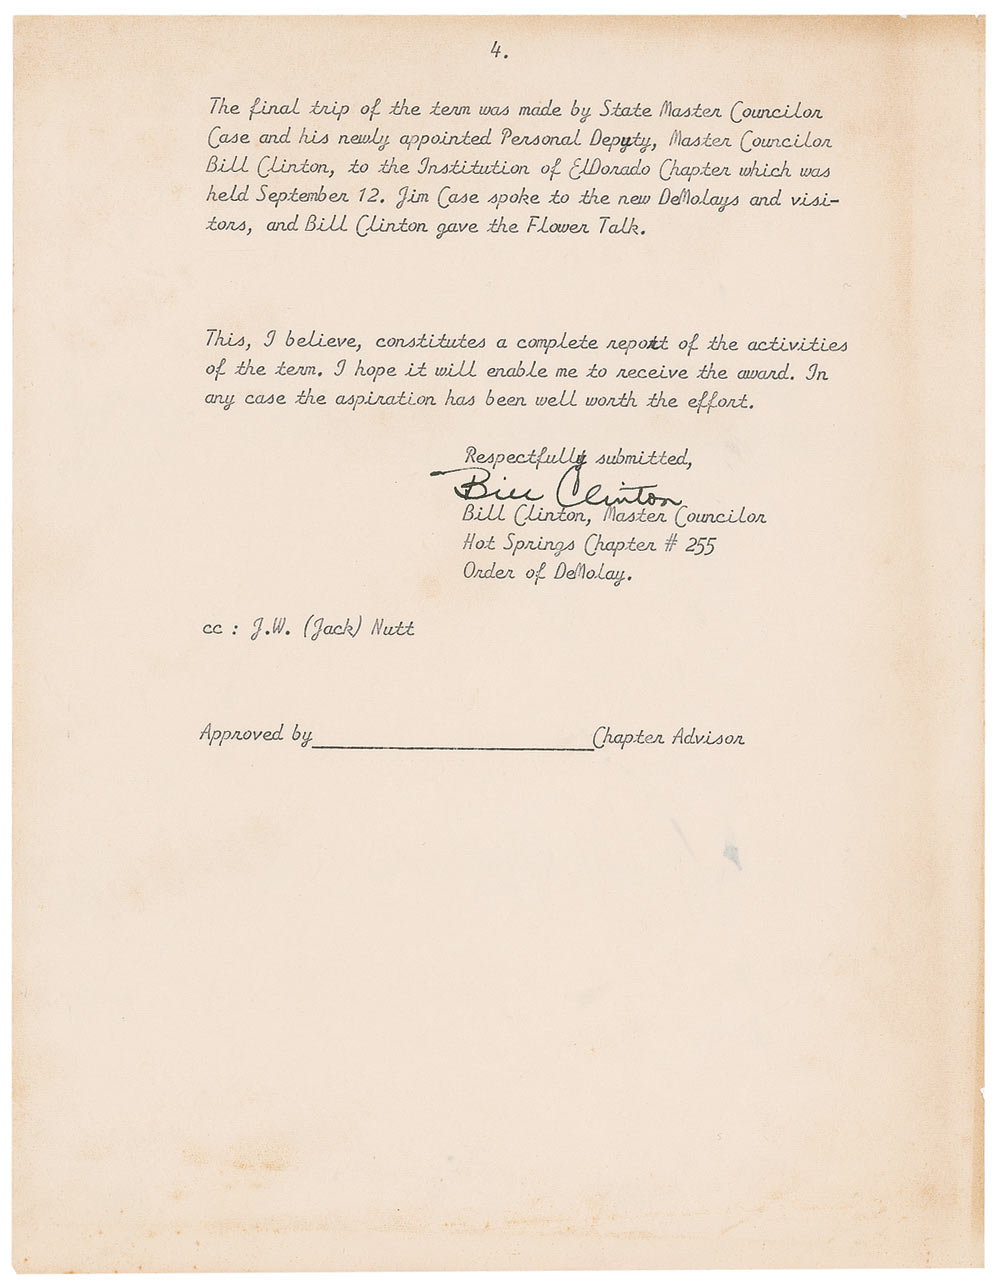 4.
The final trip of the term was made by State Master Councilor
Case and his newly appointed Personal Deputy, Master Councilor
Bill Clinton, to the Institution of ElDorado Chapter which was
held September 12. Jim Case spoke to the new DeMolays and visi-
tors, and Bill Clinton gave the Flower Talk.
This, I believe, constitutes a complete report of the activities
of the term. I hope it will enable me to receive the award. In
any case the aspiration has been well worth the effort.
Respectfully submitted,
Bill Clinton
Bill Clinton, Master Councilor
Hot Springs Chapter # 255
Order of DeMolay.
cc : J.W. (Jack) Nutt
Approved by____________________Chapter Advisor